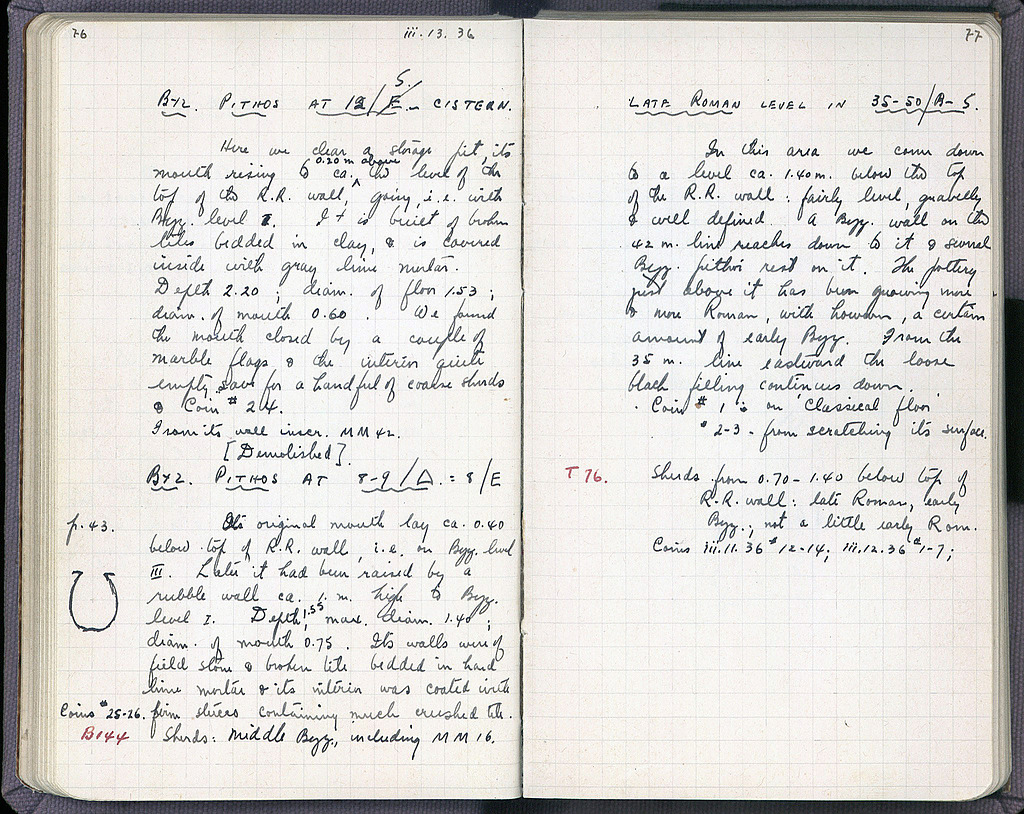 76
iii.13.36
S.
BYZ. PITHOS AT 12/E - CISTERN.
Here we clear a storage pit, its
0.20 m above
mouth rising to ca. the level of the
top of the R.R. wall, going, i.e. with
Byz. level I. It is built of broken
tiles bedded in clay, & is covered
inside with gray lime mortar.
Depth 2.20 ; diam. of floor 1.53 ;
diam. of mouth 0.60 . We found
the mouth closed by a couple of
marble flags & the interior quite
empty, save for a handful of coarse sherds
& Coin # 24.
From its wall inscr. MM 42.
[Demolished].
BYZ. PITHOS AT 8-9/Δ. = 8/E
p. 43.
Its original mouth lay ca. 0.40
below top of R.R. wall, i.e. on Byz. level
III. Later it had been raised by a
rubble wall ca. 1. m. high to Byz.
level I. Depth 1.55, max. diam. 1.40 ;
diam. of mouth 0.75 . Its walls were of
field stone & broken tile bedded in hard
lime mortar & its interior was coated with
Coins # 25-26. firm stucco containing much crushed tile.
B144 Sherds: Middle Byz., including MM 16.
77
LATE ROMAN LEVEL IN 35-50/B-S.
In this area we come down
to a level ca. 1.40 m. below the top
of the R.R. wall : fairly level, gravelly
& well defined. A Byz. wall on the
42 m. line reaches down to it & several
Byz. pithoi rest on it. The pottery
just above it has been growing more
& more Roman, with however, a certain
amount of early Byz. From the
35 m. line eastward the loose
black filling continues down.
Coin # 1 is on 'Classical floor'
# 2-3 - from scratching its surface.
T 76. Sherds from 0.70-1.40 below top of
R.R. wall : late Roman, early
Byz., not a little early Rom.
Coins iii.11.36 # 12-14; iii.12.36 # 1-7;